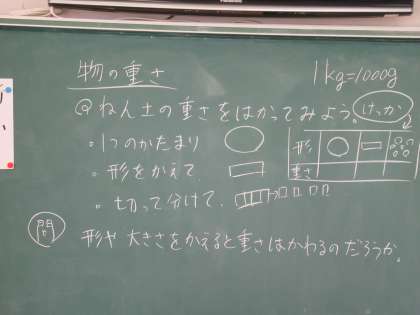 Panasonic
物の重さ
1kg=1000g
@ねん土の重さをはかってみよう。
けっか
・1つのかたまり
・形をかえて
・切って分けて
形
重さ
問
形や大きさをかえると重さはかわるのだろうか。